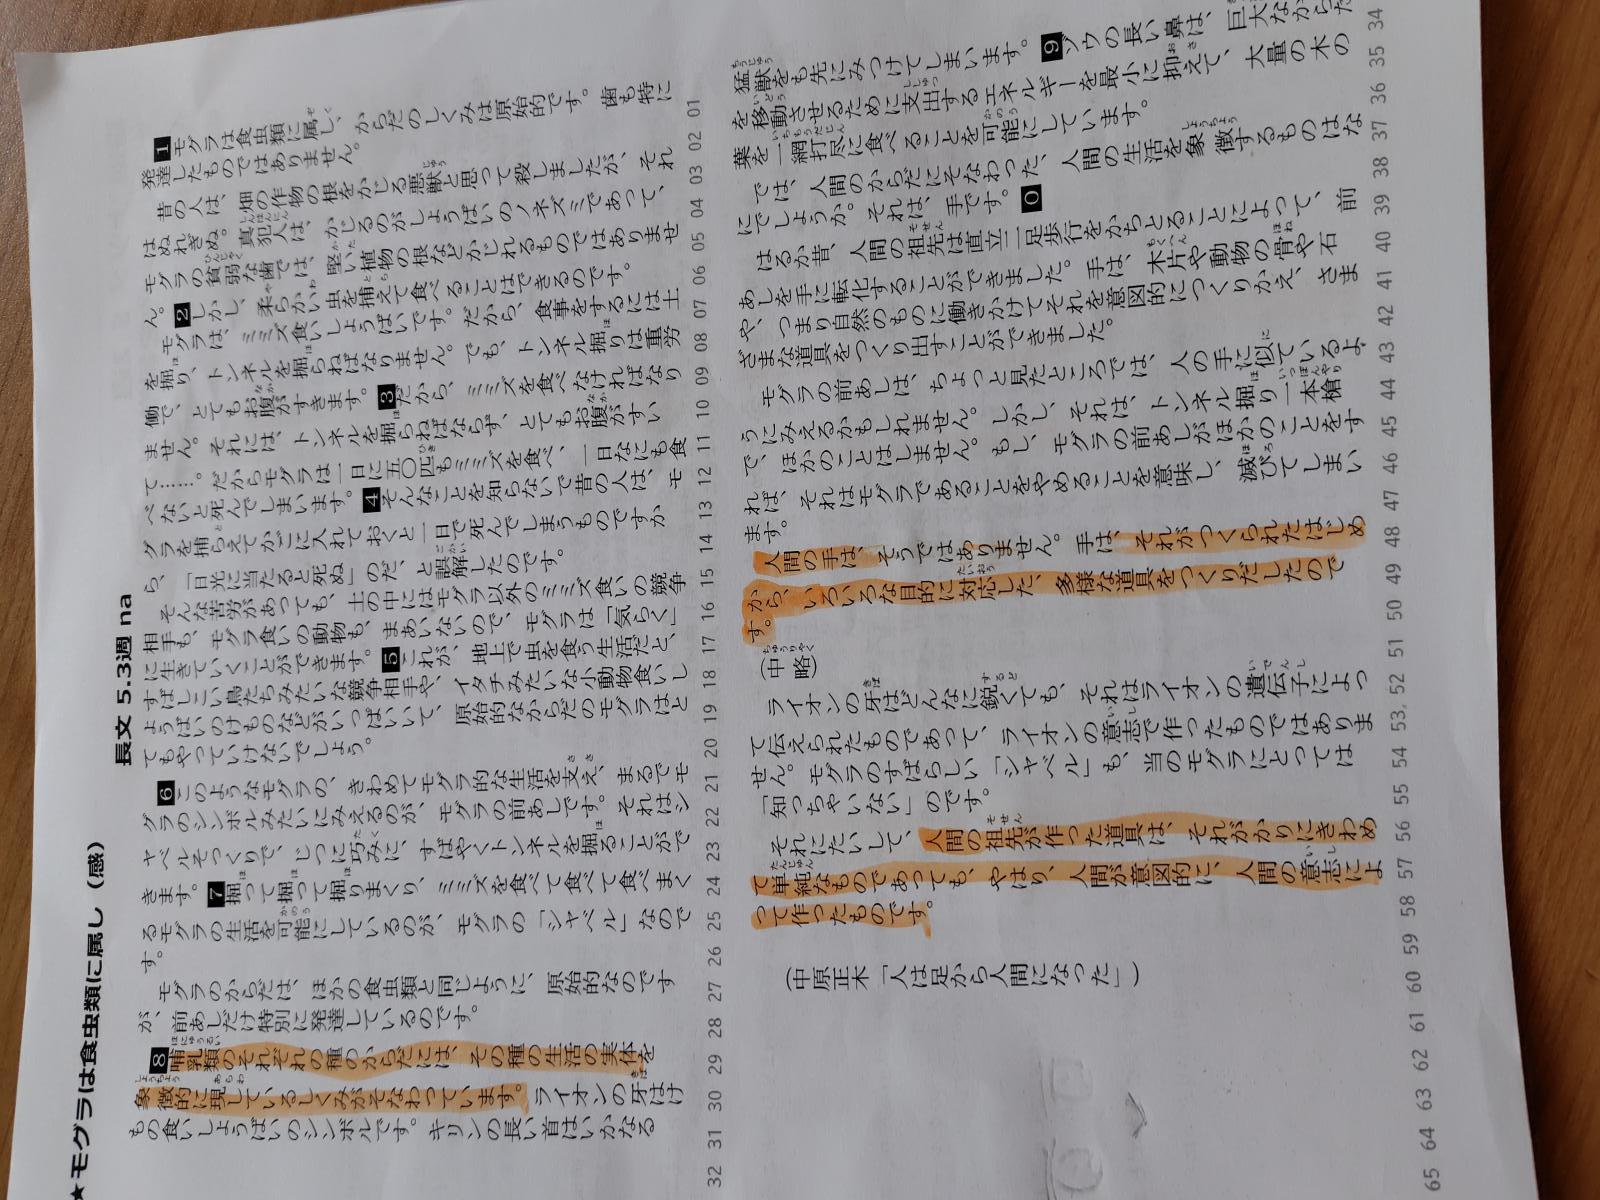 ★モグラは食虫類に属し（感）
長文 5.3週 na
1モグラは食虫類に属し、からだのしくみは原始的です。歯も特に
発達したものではありません。
昔の人は、畑の作物の根をかじる悪獣と思って殺しましたが、それ
はぬれぎぬ。真犯人は、かじるのがしょうばいのノネズミであって、
モグラの貧弱な歯では、堅い植物の根などかじれるものではありませ
ん。2しかし、柔らかい虫を捕えて食べることはできるのです。
モグラは、ミミズ食いしょうばいです。だから、食事をするには土
を掘り、トンネルを掘らねばなりません。でも、トンネル掘りは重労
働で、とてもお腹がすきます。3だから、ミミズを食べなければなり
ません。それには、トンネルを掘らねばならず、とてもお腹がすい
て……。だからモグラは一日に五〇匹もミミズを食べ、一日なにも食
べないと死んでしまいます。4そんなことを知らないで昔の人は、モ
グラを捕らえてかごに入れておくと一日で死んでしまうものですか
ら、「日光に当たると死ぬ」のだ、と誤解したのです。
そんな苦労があっても、土の中にはモグラ以外のミミズ食いの競争
相手も、モグラ食いの動物も、まあいないので、モグラは「気らく」
に生きていくことができます。5これが、地上で虫を食う生活だと、
すばしこい鳥たちみたいな競争相手や、イタチみたいな小動物食いし
ょうばいのけものなどがいっぱいいて、原始的なからだのモグラはと
てもやっていけないでしょう。
6このようなモグラの、きわめてモグラ的な生活を支え、まるでモ
グラのシンボルみたいにみえるのが、モグラの前あしです。それはシ
ャベルそっくりで、じつに巧みに、すばやくトンネルを掘ることがで
きます。7掘って掘って掘りまくり、ミミズを食べて食べて食べまく
るモグラの生活を可能にしているのが、モグラの「シャベル」なので
す。
モグラのからだは、ほかの食虫類と同じように、原始的なのです
が、前あしだけ特別に発達しているのです。
8哺乳類のそれぞれの種のからだには、その種の生活の実体を
象徴的に現しているしくみがそなわっています。ライオンの牙はけ
もの食いしょうばいのシンボルです。キリンの長い首はいかなる
01
02
03
04
05
06
07
08
09
10
11
12
13
14
15
16
17
18
19
20
21
22
23
24
25
26
27
28
29
30
31
32
猛獣をも先にみつけてしまいます。9ゾウの長い鼻は、巨大なからだ
を移動させるために支出するエネルギーを最小に抑えて、大量の木の
葉を一網打尽に食べることを可能にしています。
では、人間のからだにそなわった、人間の生活を象徴するものはな
にでしょうか。それは、手です。0
はるか昔、人間の祖先は直立二足歩行をかちとることによって、前
あしを手に転化することができました。手は、木片や動物の骨や石
や、つまり自然のものに働きかけてそれを意図的につくりかえ、さま
ざまな道具をつくり出すことができました。
モグラの前あしは、ちょっと見たところでは、人の手に似ているよ
うにみえるかもしれません。しかし、それは、トンネル掘り一本槍
で、ほかのことはしません。もし、モグラの前あしがほかのことをす
れば、それはモグラであることをやめることを意味し、滅びてしまい
ます。
人間の手は、そうではありません。手は、それがつくられたはじめ
から、いろいろな目的に対応した、多様な道具をつくりだしたので
す。
（中略）
ライオンの牙はどんなに鋭くても、それはライオンの遺伝子によっ
て伝えられたものであって、ライオンの意志で作ったものではありま
せん。モグラのすばらしい「シャベル」も、当のモグラにとっては
「知っちゃいない」のです。
それにたいして、人間の祖先が作った道具は、それがかりにきわめ
て単純なものであっても、やはり、人間が意図的に、人間の意志によ
って作ったものです。
（中原正木「人は足から人間になった」）
34
35
36
37
38
39
40
41
42
43
44
45
46
47
48
49
50
51
52
53
54
55
56
57
58
59
60
61
62
63
64
65